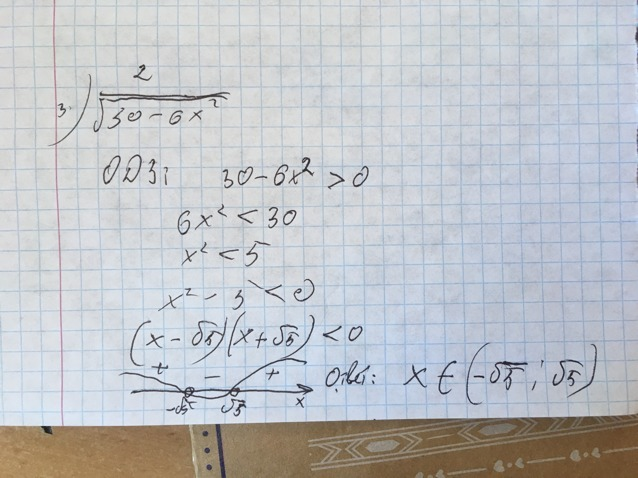 3.) 2/√(30-6x²)
ОДЗ: 30-6x² > 0
6x² < 30
x² < 5
x² - 5 < 0
(x-√5)(x+√5) < 0
+ - +
-√5 √5 x
Ответ: x ∈ (-√5; √5)